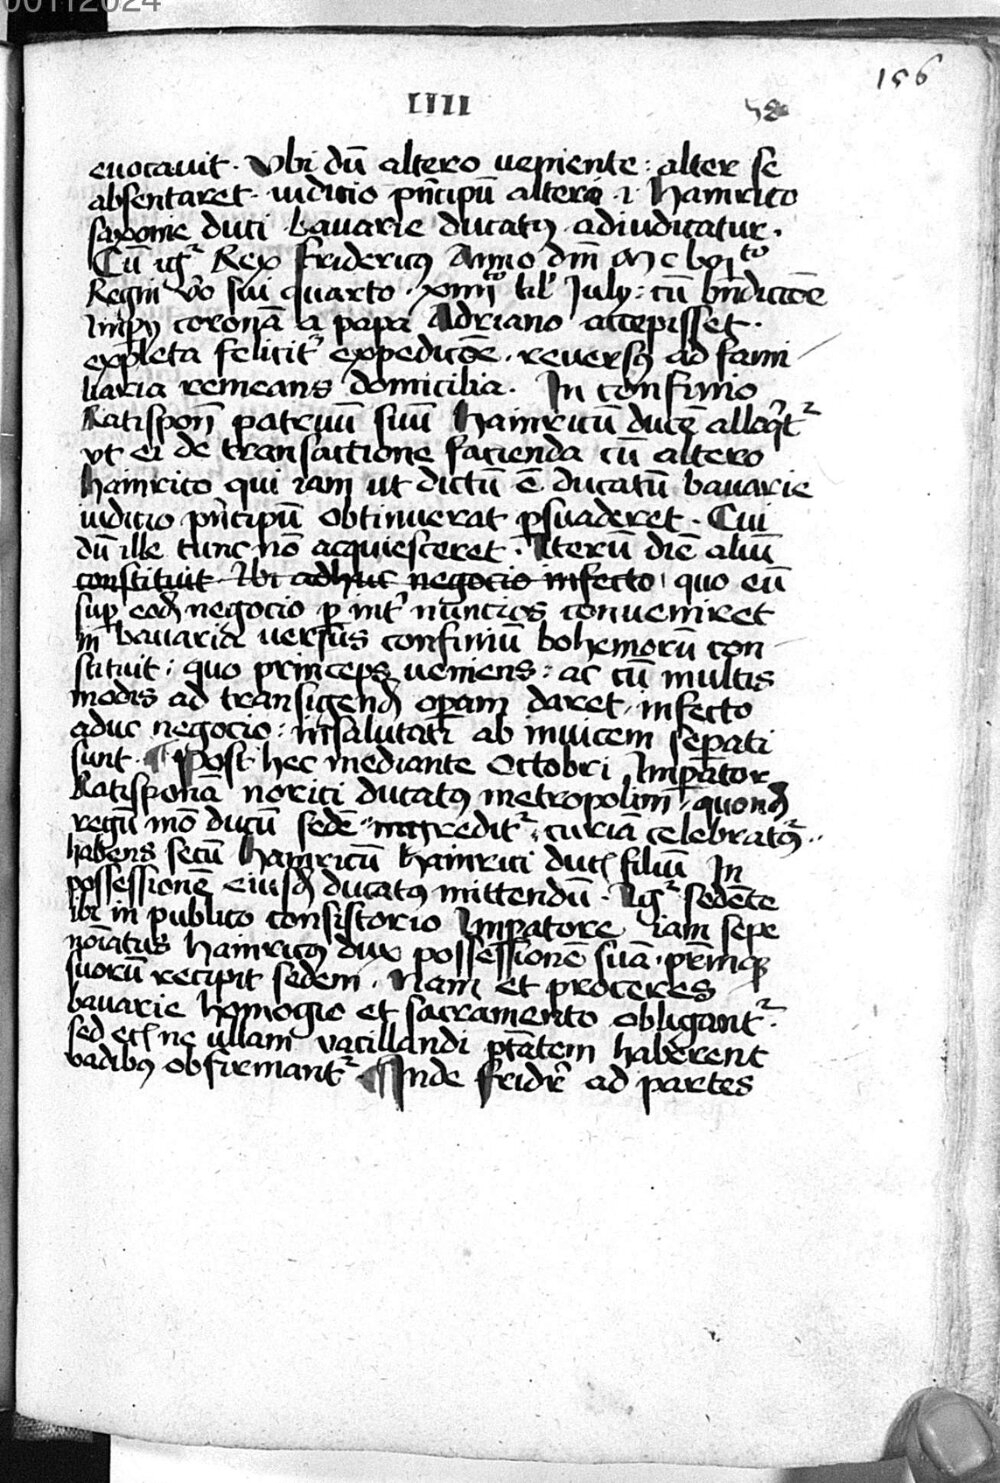 00112024
156
LIIII
58
euocauit. Vbi dū altero ueniente: alter se
absentaret. iudicio pn̄cipū altero .i. hainrico
saxonie duci bauarie ducatꝯ adiudicatur.
Cū igr̄ Rex fridericꝯ Anno dm̄
Regni v̄o sui quarto. xiiii kl' July: cū bn̄dictōe
impij coronā a papa Adriano accepisset.
expleta felicit̄ expedictōe. reuersꝯ ad fami
liaria remeans domicilia. In confinio
Ratispon̄ patruū suū hainricū ducē
vt ei de transactione facienda cū altero
hainrico qui iam ut dictū ē ducatū bauarie
iudicio pn̄cipū obtinuerat ꝑsuaderet. Cui
dū ille tunc nō acquiesceret. Iterū diē aliū
constituit. Ibi adhuc negocio infecto quo eū
suꝑ eodē negocio ꝑ int̄nuncios conueniret
in bauaria uersus confiniū bohemorū con
stituit: quo princeps ueniens: ac cū multis
modis ad transigend̄ oꝑam daret, infecto
aduc negocio: insalutati ab inuicem seꝑati
sunt. ¶ Post hec mediante Octobri Imperator
Ratisponā norici ducatꝯ metropolim, quond̄
regū mō ducū sedē ingredit̄, curiā celebratꝯ̄.
habens secū hainricū hainrici duc̄ filiū In
possessionē eiusd̄ ducatꝯ mittendū. Igr̄ sedēte
ibi in publico consistorio Impatore iam sepe
noīatus hainricꝯ dux possessionē suā. prm̄qꝫ
suorū recipit sedem. Nam et proceres
bauarie homogio et sacramento obligant̄.
sed ec̄ ne ullam vacillandi ptātem haberent
vadibꝯ obfirmant̄. ¶ Inde fridr̄ ad partes